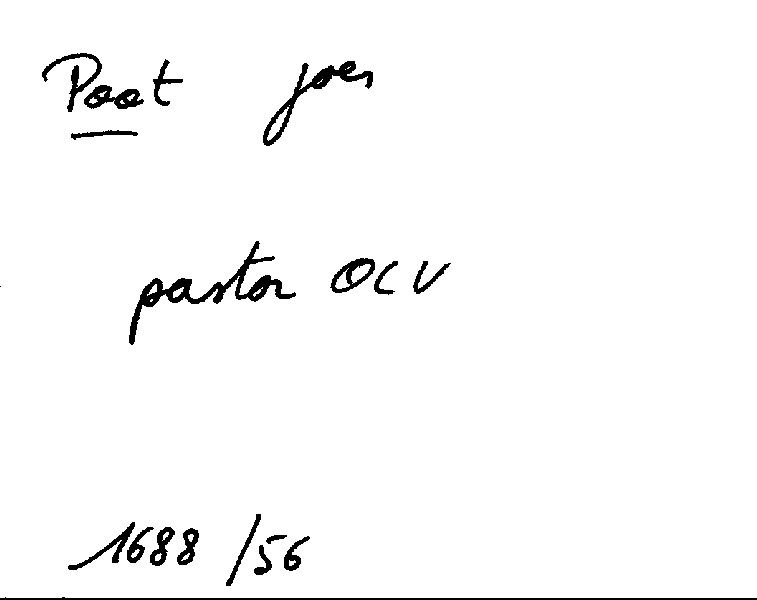 Poot Joes
pastor OLV
1688/56